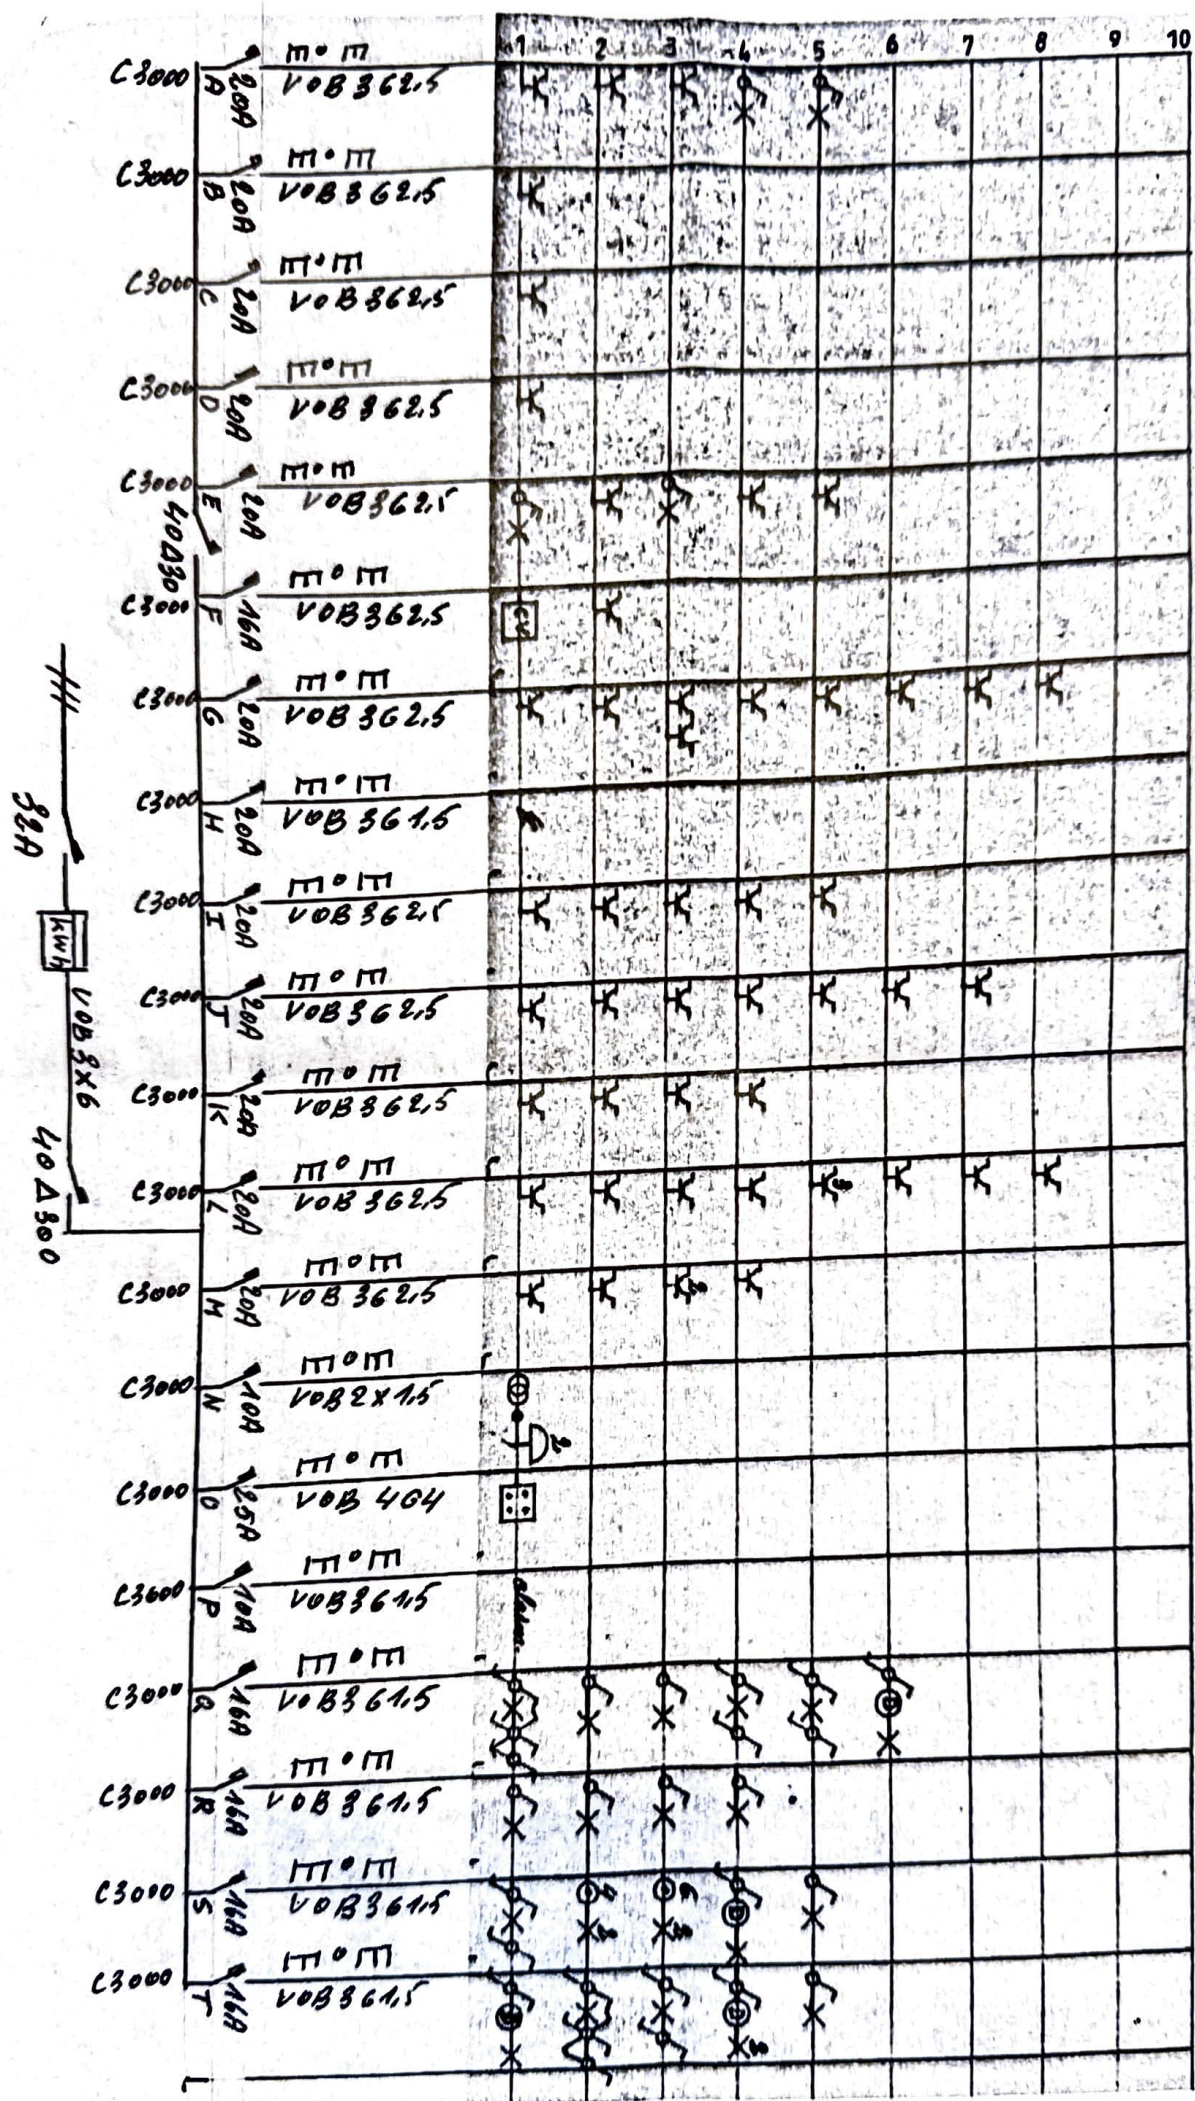 1 2 3 4 5 6 7 8 9 10
C3000 A 20A VOB 3G2,5
C3000 B 20A VOB 3G2,5
C3000 C 20A VOB 3G2,5
C3000 D 20A VOB 3G2,5
C3000 E 20A VOB 3G2,5
40Δ30
C3000 F 16A VOB 3G2,5
C3000 G 20A VOB 3G2,5
C3000 H 20A VOB 3G1,5
C3000 I 20A VOB 3G2,5
C3000 J 20A VOB 3G2,5
C3000 K 20A VOB 3G2,5
C3000 L 20A VOB 3G2,5 3
C3000 M 20A VOB 3G2,5 2
C3000 N 10A VOB 2x1,5
2
C3000 O 25A VOB 4G4
C3000 P 10A VOB 3G1,5 alarm.
C3000 Q 16A VOB 3G1,5
C3000 R 16A VOB 3G1,5
C3000 S 16A VOB 3G1,5
C3000 T 16A VOB 3G1,5
32A
kWh
VOB 3x6
40Δ300